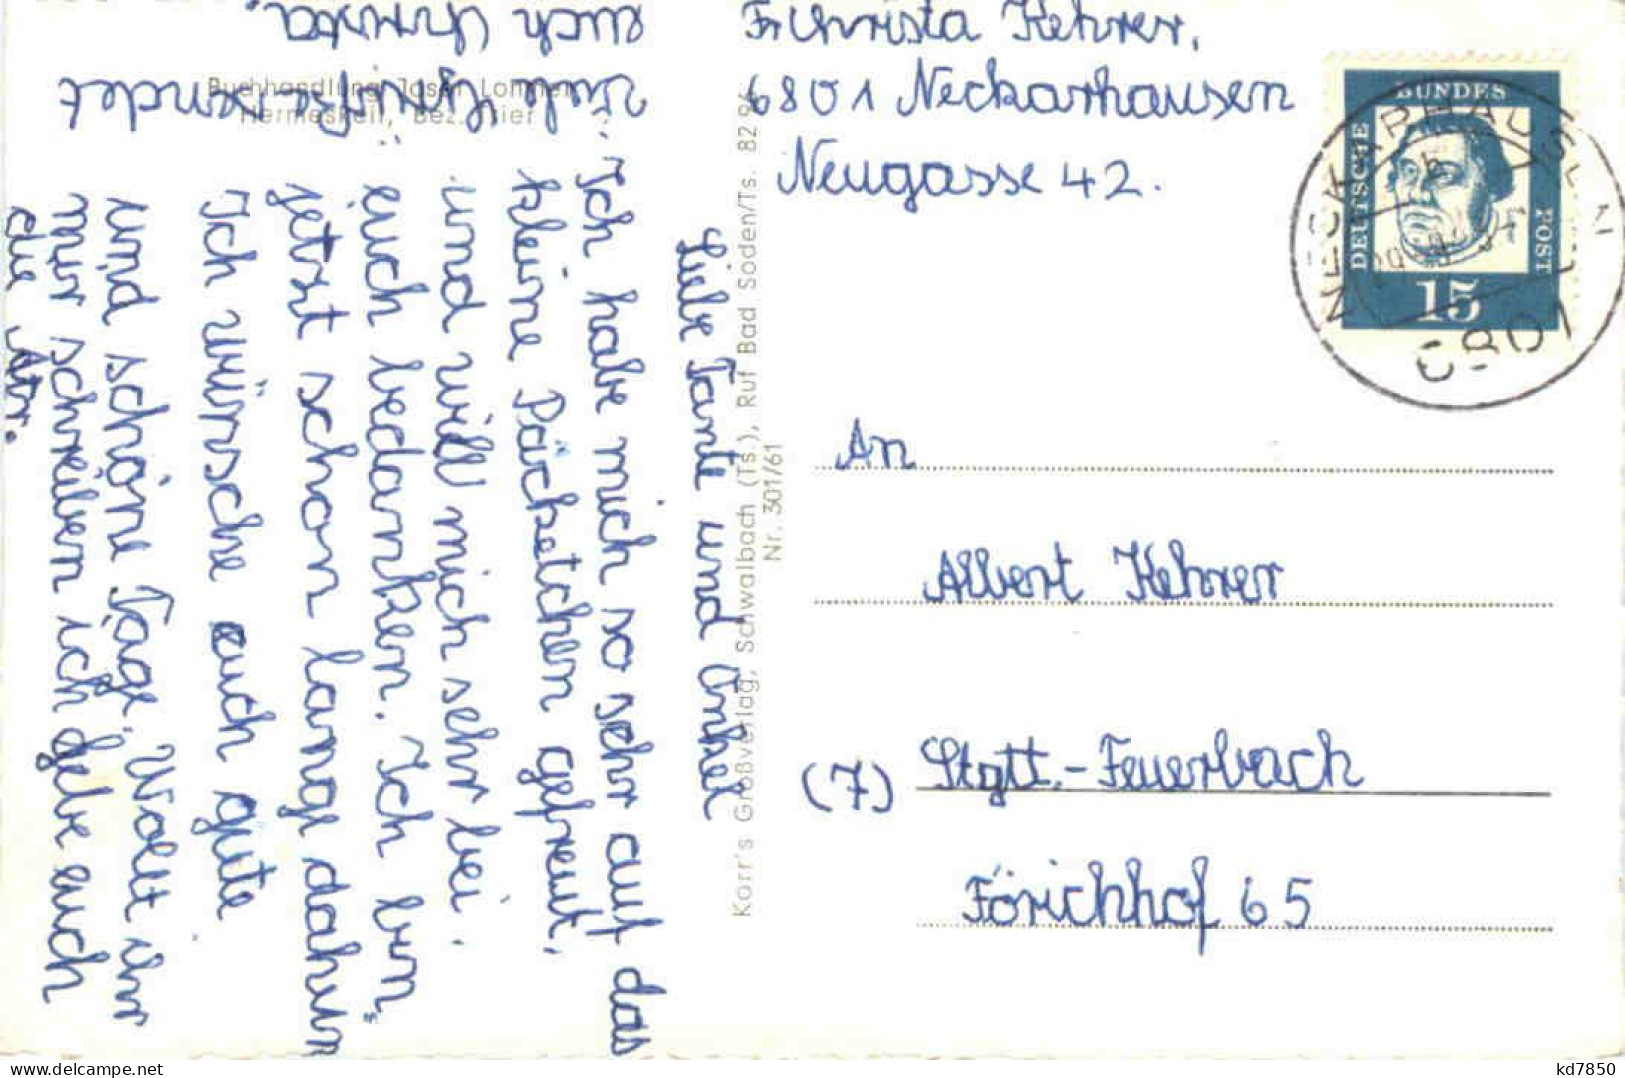 Liebe Tante und Onkel
Ich habe mich so sehr auf das
kleine Päcketchen gefreut.
und will mich sehr bei
euch bedanken. Ich bin
jetzt schon lange daheim
Ich würsche euch gute
und schöne Tage. Wolt ihr
mir schreiben ich gebe euch
die Atr.
Viele Grüße sendet
euch Christa.
Buchhandlung Josef Lommel
Hermeskeil, Bez. Trier
Korr's Großverlag, Schwalbach (Ts.), Ruf Bad Soden/Ts. 82 94
Nr. 301/61
Christa Kehrer,
6801 Neckarhausen
Neugasse 42.
DEUTSCHE
BUNDES
POST
15
NECKARHAUSEN
6801
An
Albert Kehrer
(7) Stgtt.-Feuerbach
Förichhof 65
kd7850